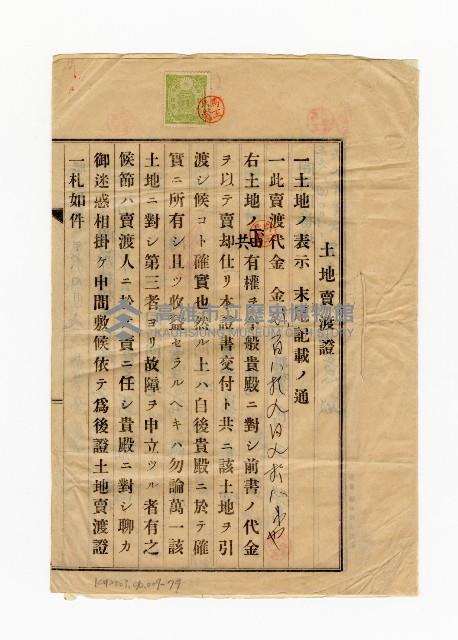 土地賣渡證
一土地ノ表示 末尾記載ノ通
一此賣渡代金 金 百八拾九円九拾 也
右土地ノ共有權ヲ今般貴殿ニ對シ前書ノ代金
ヲ以テ賣却仕リ本證書交付ト共ニ該土地ヲ引
渡シ候コト確實也然ル上ハ自後貴殿ニ於テ確
實ニ所有シ且ツ收益セラルヘキハ勿論萬一該
土地ニ對シ第三者ヨリ故障ヲ申立ツル者有之
候節ハ賣渡人ニ於テ責ニ任シ貴殿ニ對シ聊カ
御迷惑相掛ケ申間敷候依テ為後證土地賣渡證
一札如件
高雄市立歷史博物館
KAOHSIUNG MUSEUM OF HISTORY